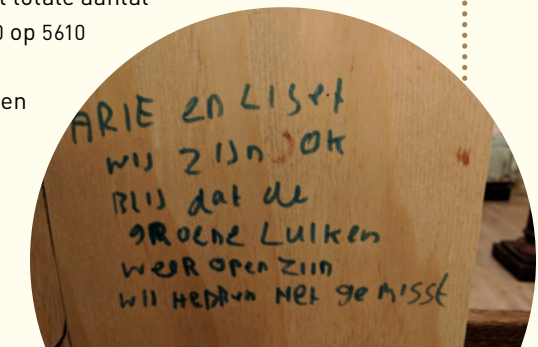 t totale aantal
0 op 5610
en
ARIE en Liset
wij zijn ok
Blij dat de
gRoene Luiken
weeR open zijn
wij Hebben Het gemisst